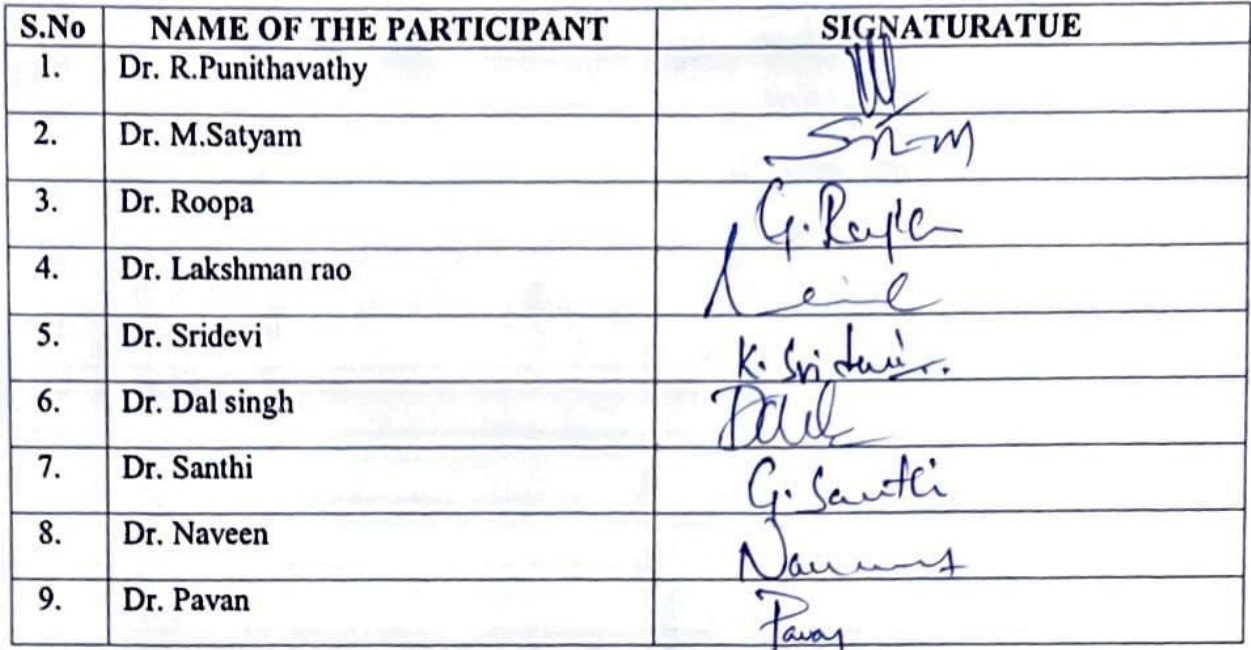 S.No NAME OF THE PARTICIPANT SIGNATURATUE
1. Dr. R.Punithavathy
2. Dr. M.Satyam
3. Dr. Roopa G.
4. Dr. Lakshman rao
5. Dr. Sridevi K. Sridevi.
6. Dr. Dal singh
7. Dr. Santhi G. Santhi
8. Dr. Naveen
9. Dr. Pavan Pavan